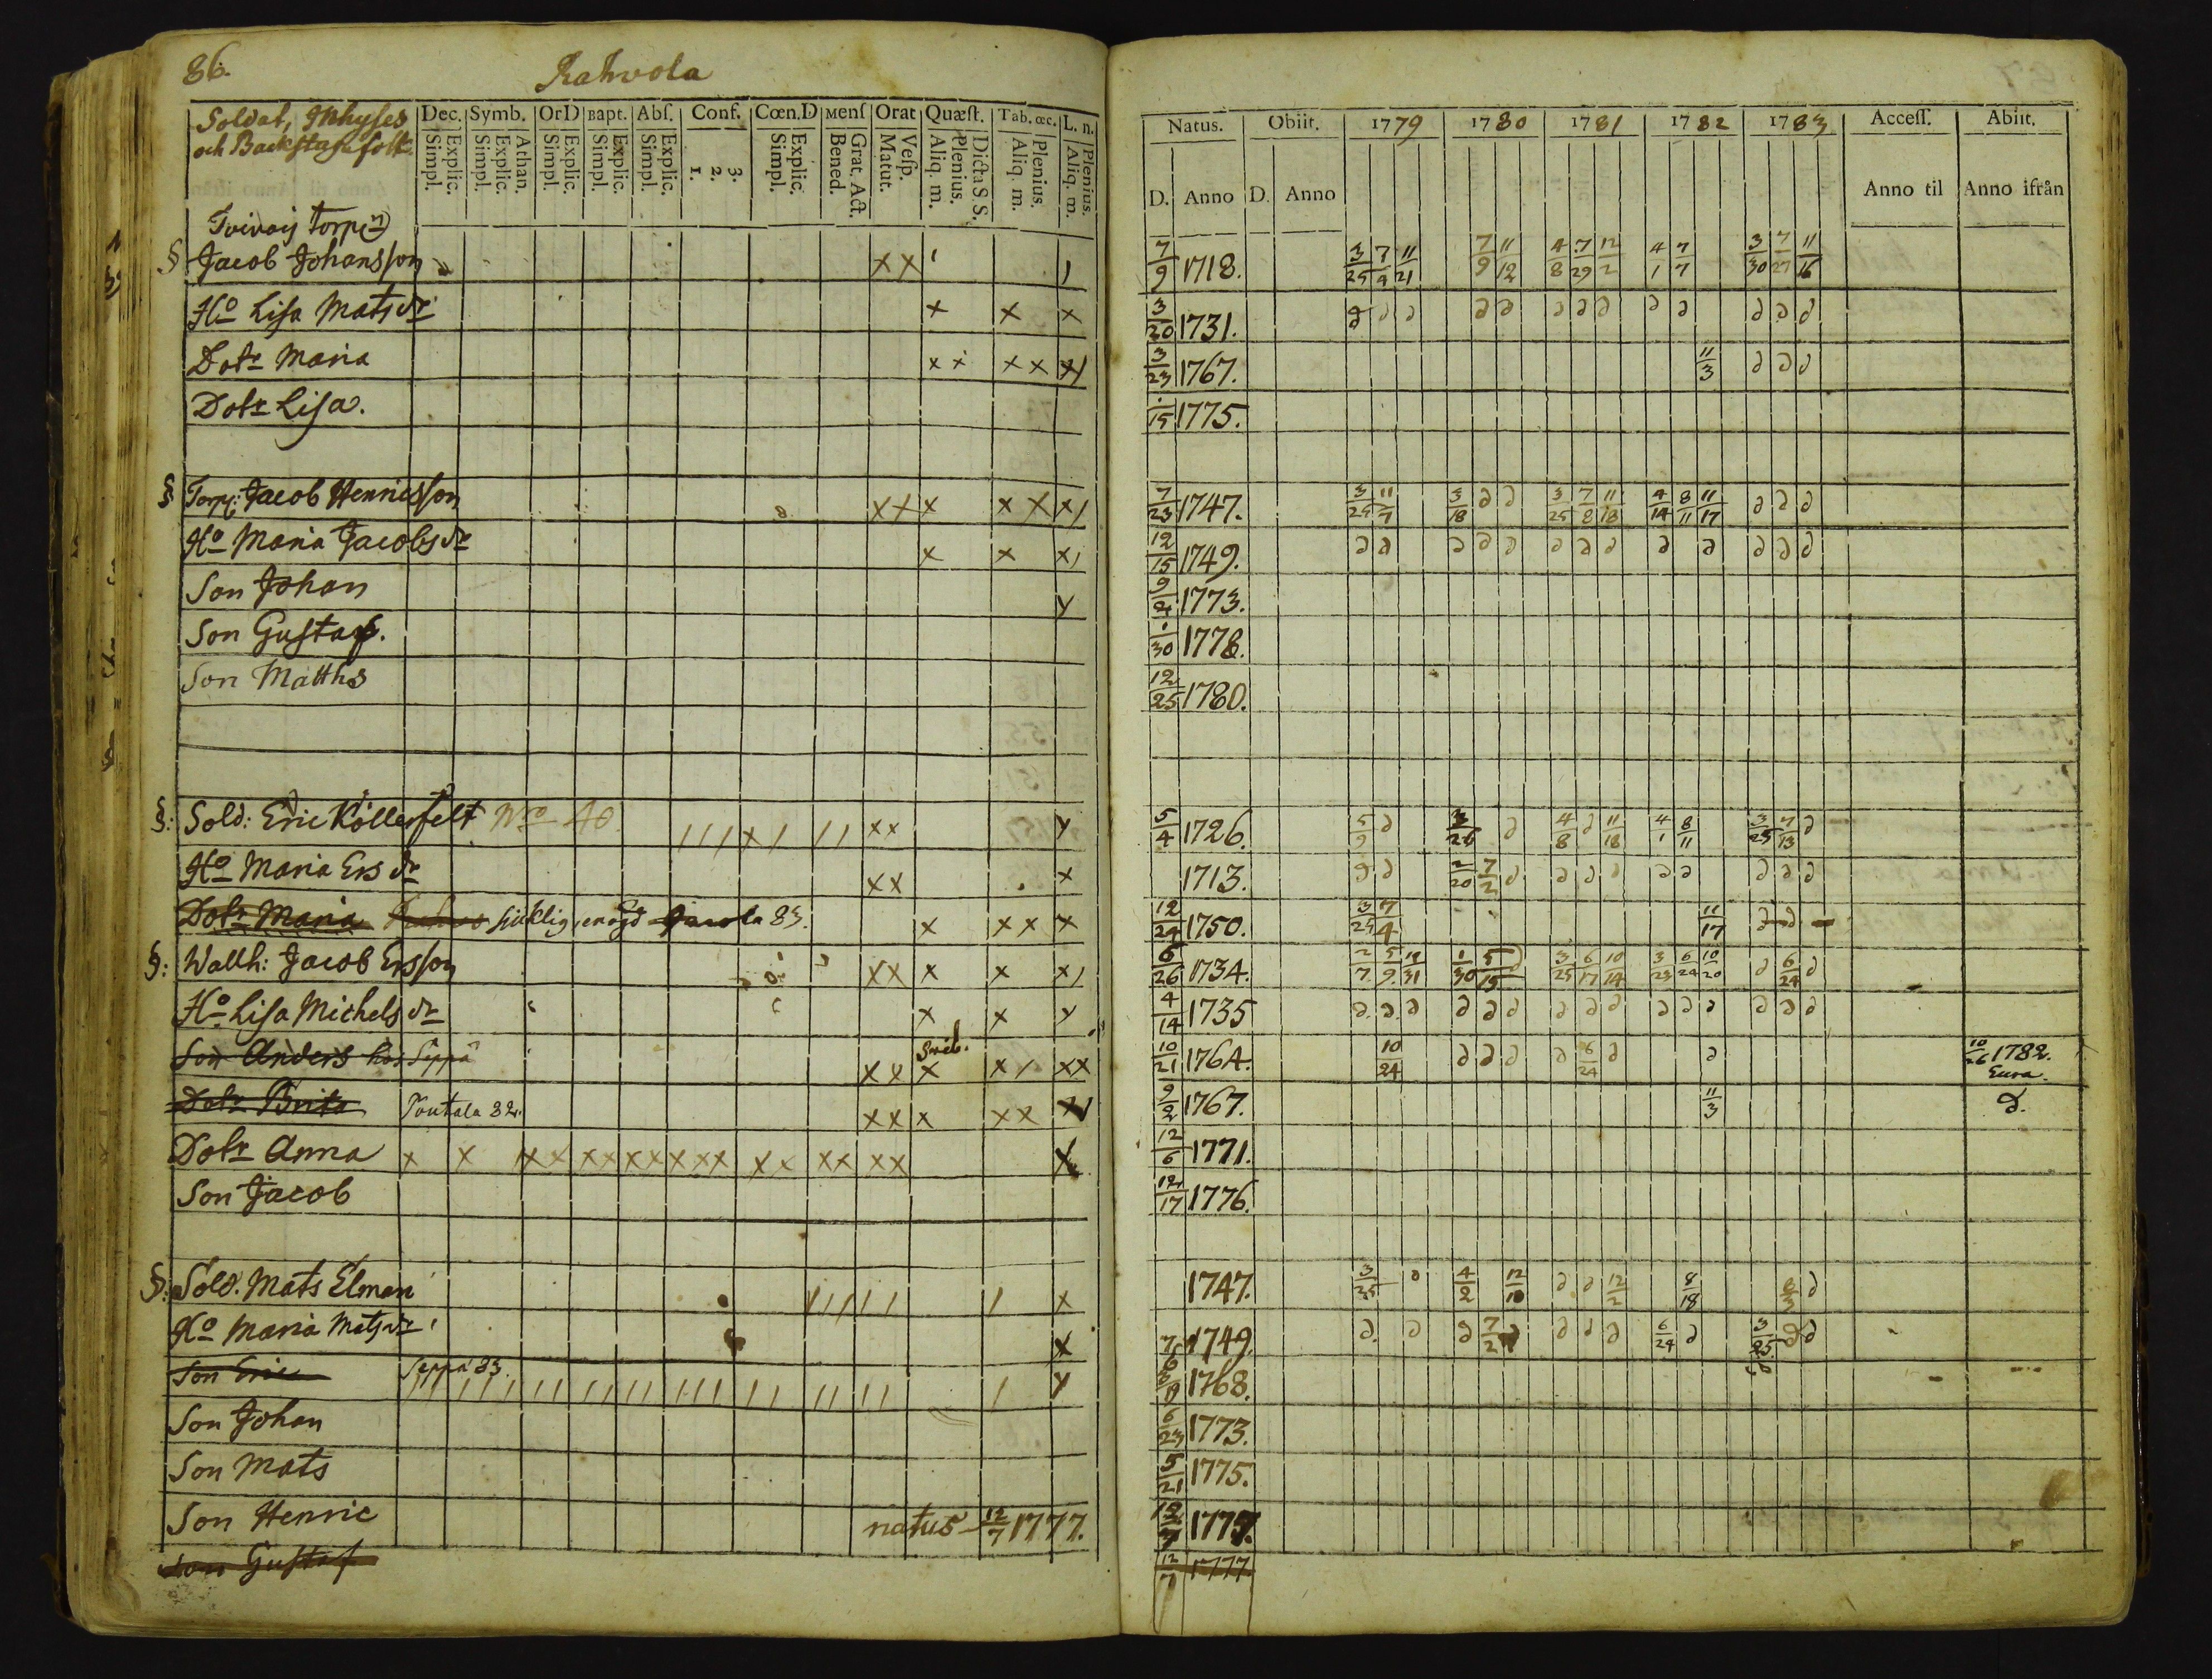 86.
Rahvola
Soldat, Inhyses
och Backstugu folk
Dec. Symb. OrD Bapt. Abs. Conf. Cœn.D Mens Orat Quæst. Tab. œc. L. n.
Explic. Simpl. Athan. Explic. Simpl. Explic. Simpl. Explic. Simpl. Explic. Simpl. 3. 2. 1. Explic. Simpl. Grat. Act. Bened. Vesp. Matut. Dicta S. S. Plenius. Aliq. m. Plenius. Aliq. m. Plenius. Aliq. m.
Natus. Obiit. 1779 1780 1781 1782 1783 Access. Abiit.
D. Anno D. Anno Anno til Anno ifrån
§ Jacob Johansson x x 7/9 1718. 3/25 7/4 11/21 7/9 11/12 4/8 7/29 12/2 4/1 7/7 3/30 7/27 11/16
Ho Lisa Mats dr x x x 3/20 1731. ∂ ∂ ∂ ∂ ∂ ∂ ∂ ∂ ∂ ∂ ∂ ∂ ∂
Dotr Maria x x x x x 3/23 1767. 11/3 ∂ ∂ ∂
Dotr Lisa. 1775.
§ Torp: Jacob Henricsson x x x x x x 7/23 1747. 3/25 11/7 3/18 ∂ ∂ 3/25 7/8 11/18 4/14 8/11 11/17 ∂ ∂ ∂
Ho Maria Jacobs dr x x x 12/15 1749. ∂ ∂ ∂ ∂ ∂ ∂ ∂ ∂ ∂ ∂ ∂ ∂ ∂
Son Johan 1773.
Son Gustaf. 1/30 1778.
Son Matths 12/25 1780.
§: Sold: Eric Köllerfelt Nro 40. x x 5/4 1726. 5/9 ∂ 3/26 ∂ 4/8 ∂ 11/18 4/1 8/11 3/25 7/13 ∂
Ho Maria Ers dr x x x 1713. ∂ ∂ 2/20 7/2 ∂ ∂ ∂ ∂ ∂ ∂ ∂ ∂ ∂
Dotr Maria sjuklig, enögd 83. x x x x 12/24 1750. 3/25 7/4 11/17 ∂ ∂
§: Wallh: Jacob Ersson x x x x x 6/26 1734. 2/7 5/9 10/31 1/30 5/15 ∂ 3/25 6/17 10/14 3/23 6/24 10/20 ∂ 6/24 ∂
Ho Lisa Michels dr x x 4/14 1735 ∂ ∂ ∂ ∂ ∂ ∂ ∂ ∂ ∂ ∂ ∂ ∂ ∂ ∂ ∂
Son Anders hos Seppä x x x x x x 10/21 1764. 10/24 ∂ ∂ ∂ ∂ 6/24 ∂ ∂ 10/26 1782.
Eura.
Dotr Brita 82. x x x x x 9/2 1767. 11/3 d.
Dotr Anna x x x x x x x x x x x x x x x x x x 12/6 1771.
Son Jacob 12/17 1776.
§: Sold. Mats Elman x 1747. 3/25 ∂ 4/2 12/10 ∂ ∂ 12/2 8/18 8/3 ∂
Ho Maria Mats dr x 1749. ∂ ∂ ∂ 7/2 ∂ ∂ ∂ 6/24 ∂ 3/25 ∂ ∂
Son Eric Seppä 83. 1768.
Son Johan 6/23 1773.
Son Mats 5/21 1775.
Son Henric natus 12/7 1777. 12/7 1777.
Son Gustaf 12/7 1777